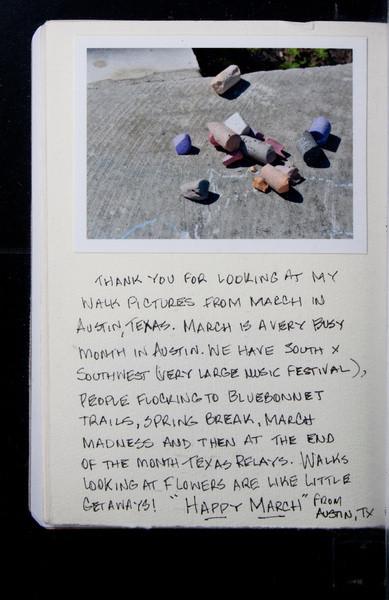 THANK YOU FOR LOOKING AT MY
WALK PICTURES FROM MARCH IN
AUSTIN, TEXAS. MARCH IS A VERY BUSY
MONTH IN AUSTIN. WE HAVE SOUTH X
SOUTHWEST (VERY LARGE MUSIC FESTIVAL),
PEOPLE FLOCKING TO BLUEBONNET
TRAILS, SPRING BREAK, MARCH
MADNESS AND THEN AT THE END
OF THE MONTH-TEXAS RELAYS. WALKS
LOOKING AT FLOWERS ARE LIKE LITTLE
GETAWAYS! "HAPPY MARCH" FROM
AUSTIN, TX